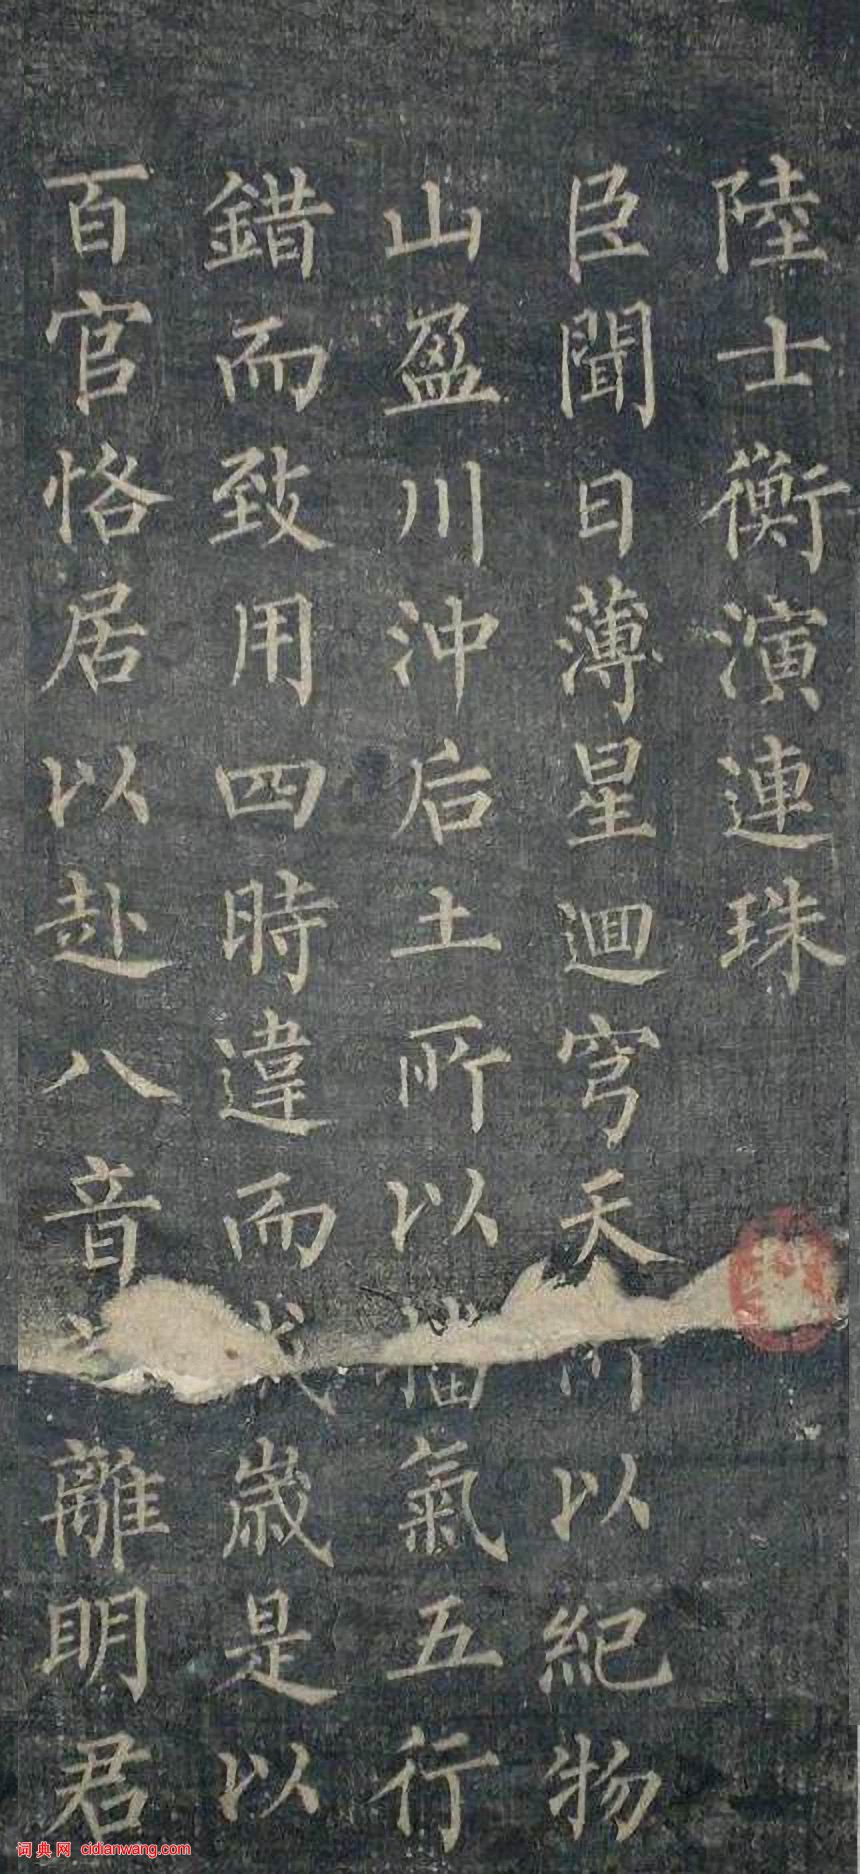 陸士衡演連珠
臣聞日薄星迴穹天所以紀物
山盈川沖后土所以播氣五行
錯而致用四時違而成歲是以
百官恪居以赴八音之離明君
词典网 cidianwang.com